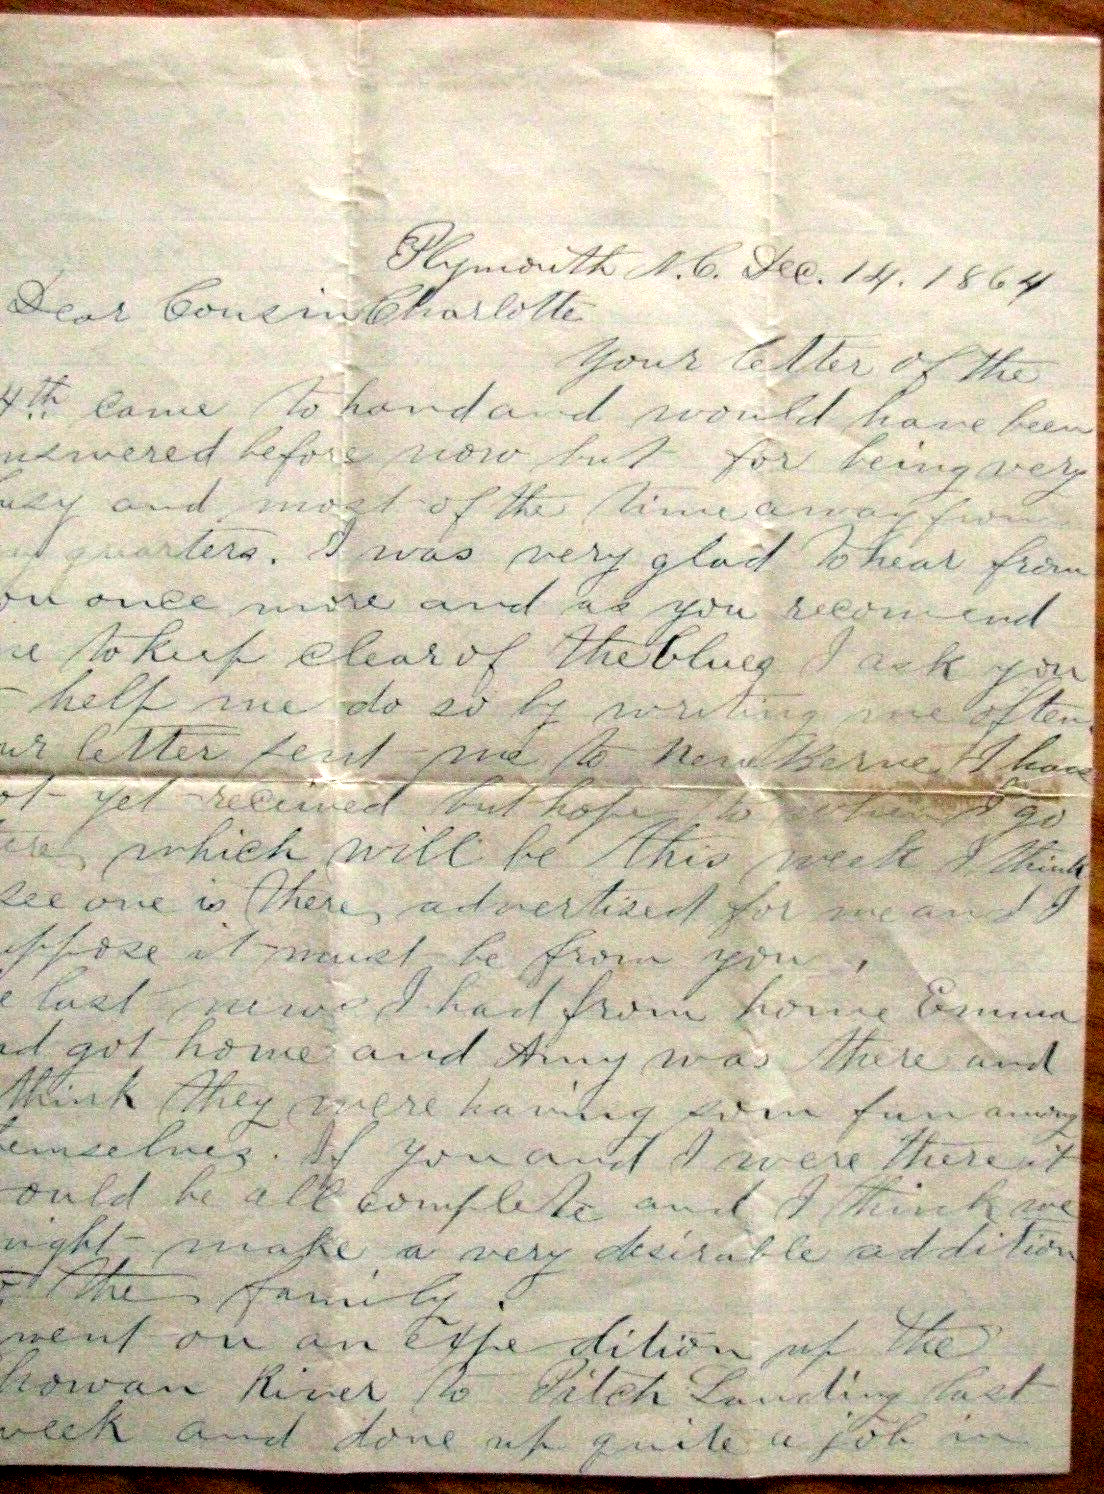 Plymouth N.C. Dec. 14. 1864
Dear Cousin Charlotte
Your letter of the
4th came to hand and would have been
nswered before now but for being very
usy and most of the time away from
y quarters. I was very glad to hear from
ou once more and as you recomend
e to keep clear of the blues I ask you
help me do so by writing me often.
ur letter sent me to New Berne I have
ot yet received but hope to when I go
ere, which will be this week I think
see one is there, advertised for me and I
uppose it must be from you.
e last news I had from home Emma
ad got home and Amy was there and
think they were having som fun among
hemselves. If you and I were there it
ould be all complete and I think we
might make a very desirable addition
to the family.
went on an expedition up the
howan River to Pitch Landing last
week and done up quite a job in